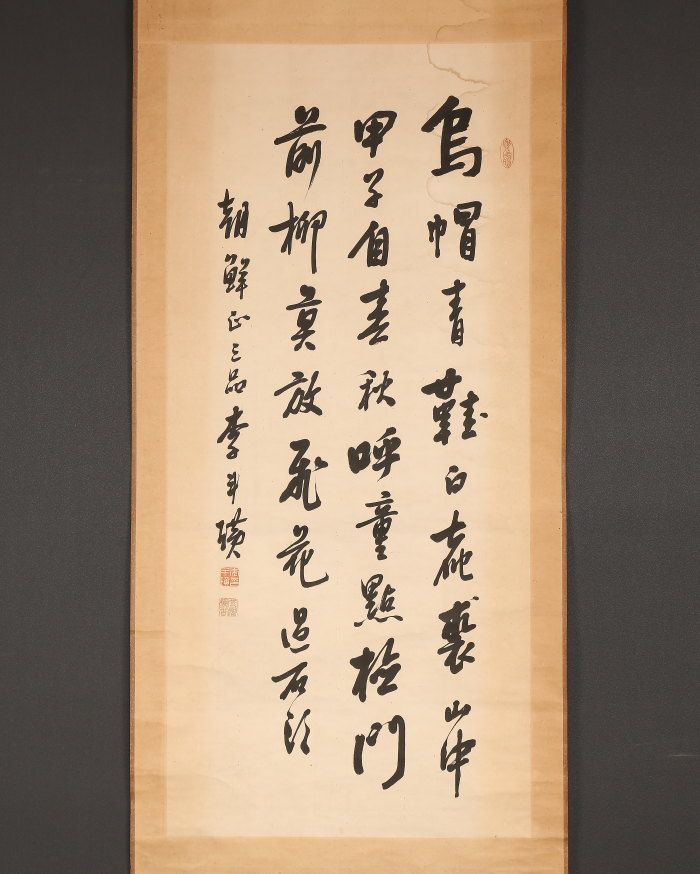 烏帽青鞋白鹿裘山中
甲子自春秋呼童點檢門
前柳莫放飛花過石頭
朝鮮正三品李斗璜